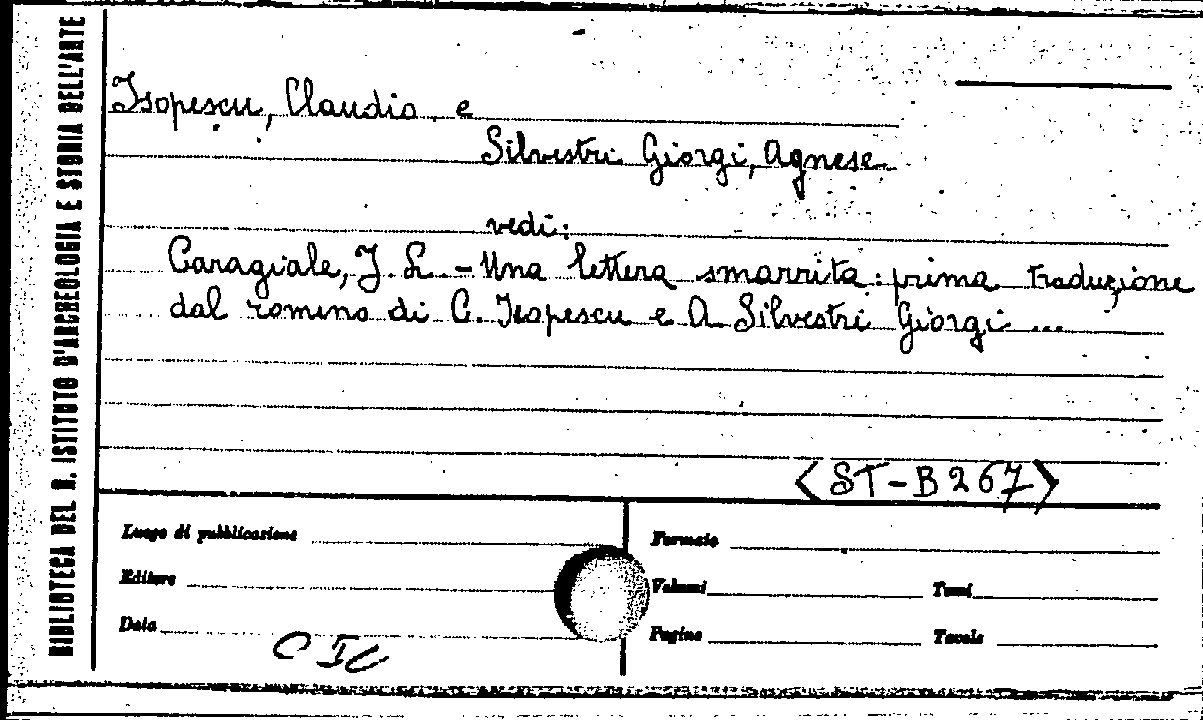 BIBLIOTECA DEL R. ISTITUTO D'ARCHEOLOGIA E STORIA DELL'ARTE
Isopescu, Claudio e
Silvestri Giorgi, Agnese
vedi:
Caragiale, J. L. - Una lettera smarrita: prima traduzione
dal romeno di C. Isopescu e A Silvestri Giorgi ...
<ST-B267>
Luogo di pubblicazione
Formato
Editore
Volumi Tomi
Data
Pagine Tavole
CIC